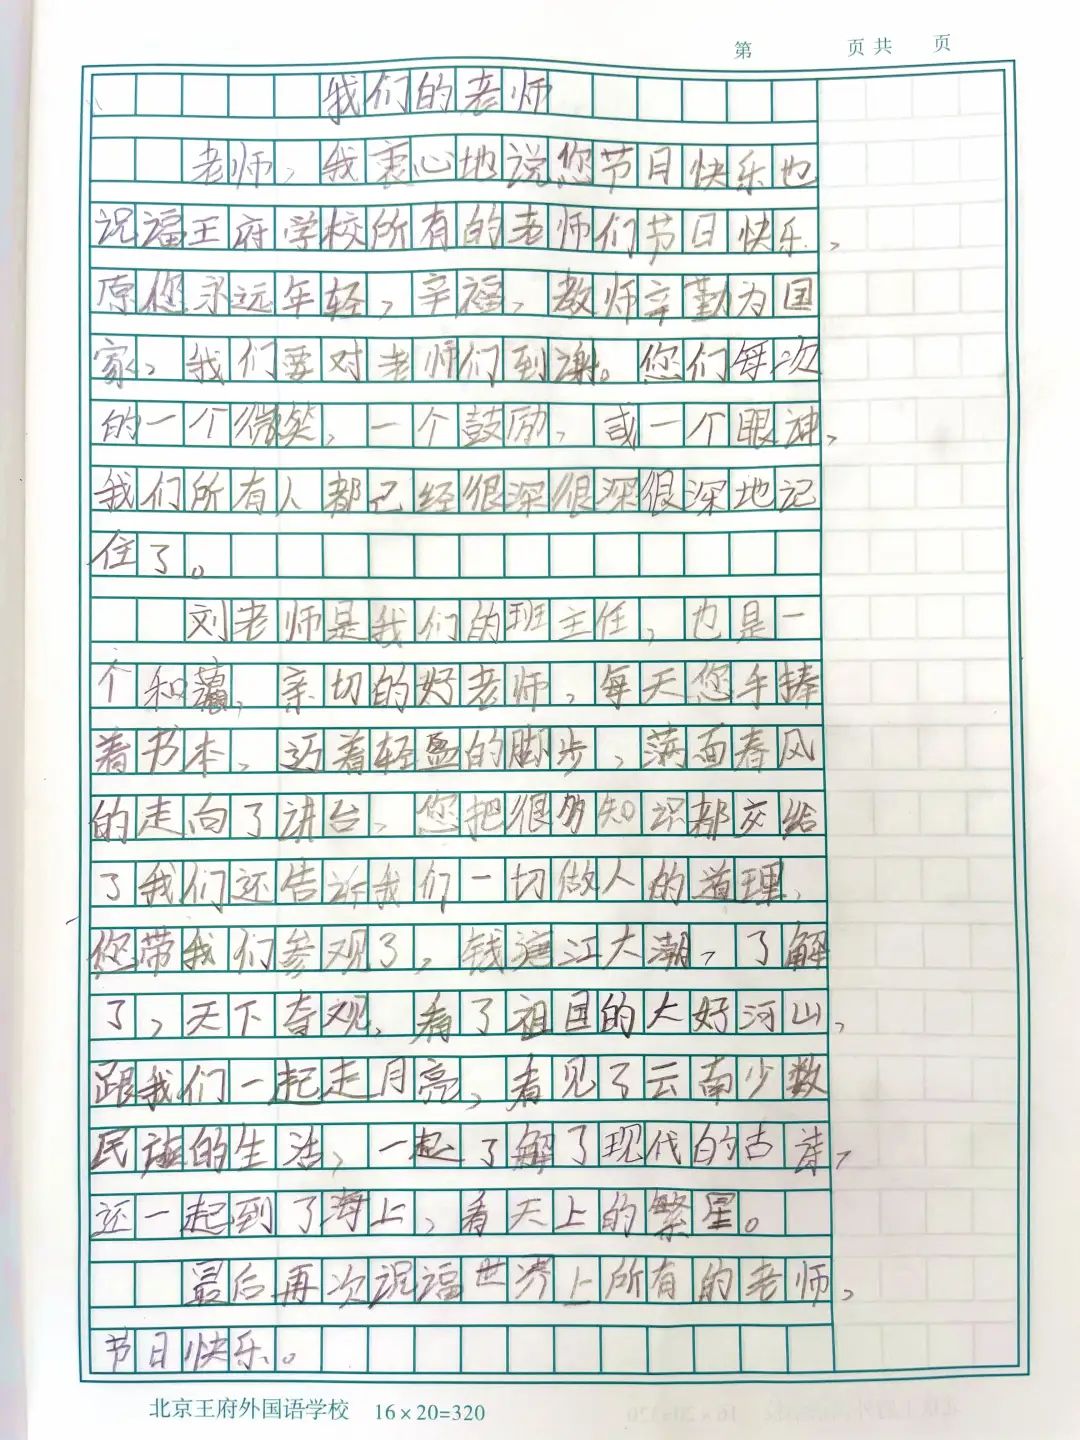 第 页 共 页
我们的老师
老师，我衷心地说您节日快乐也
祝福王府学校所有的老师们节日快乐，
原您永远年轻，辛福，教师辛勤为国
家，我们要对老师们到谢。您们每次
的一个微笑，一个鼓励，或一个眼神，
我们所有人都已经很深很深很深地记
住了。
刘老师是我们的班主任，也是一
个和蔼，亲切的好老师，每天您手捧
着书本，迈着轻盈的脚步，满面春风
的走向了讲台，您把很多知识都交给
了我们还告诉我们一切做人的道理，
您带我们参观了，钱塘江大潮，了解
了，天下奇观，看了祖国的大好河山，
跟我们一起走月亮，看见了云南少数
民族的生活，一起了解了现代的古诗，
还一起到了海上，看天上的繁星。
最后再次祝福世界上所有的老师，
节日快乐。
北京王府外国语学校 16×20=320